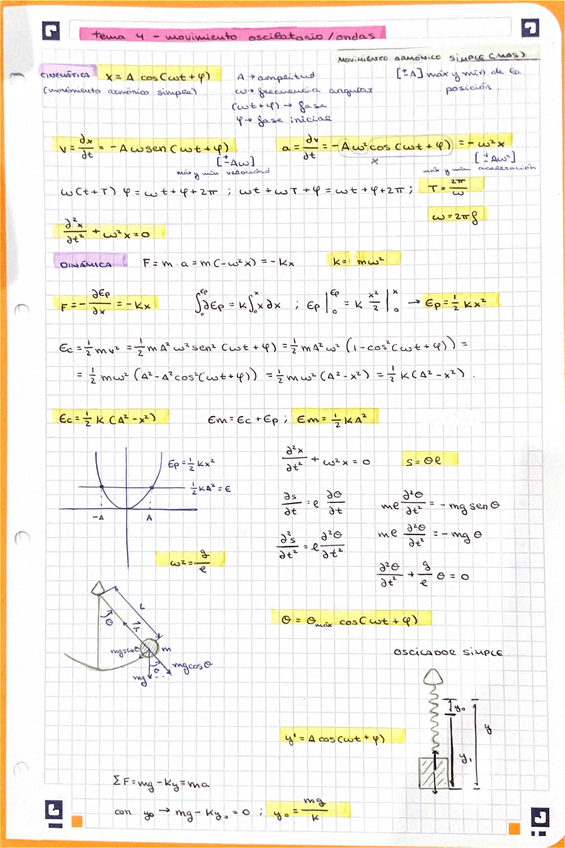 tema 4 - movimiento oscilatorio/ondas
MOVIMIENTO ARMÓNICO SIMPLE (MAS)
CINEMÁTICA x = A cos(ωt + φ)
(movimiento armónico simple)
A → amplitud
ω → frecuencia angular
(ωt + φ) → fase
φ → fase inicial
[±A] máx y mín de la
posición.
v = ∂x/∂t = -Aω sen(ωt + φ)
[±Aω]
máx y mín velocidad
a = ∂v/∂t = -Aω² cos(ωt + φ) = -ω²x
x
[±Aω²]
máx y mín aceleración
ω(t+T) φ = ωt + φ + 2π ; ωt + ωT + φ = ωt + φ + 2π ; T = 2π/ω
ω = 2πf
∂²x/∂t² + ω²x = 0
DINÁMICA F = m · a = m(-ω²x) = -Kx K = mω²
F = -∂Ep/∂x = -Kx ∫₀^Ep ∂Ep = K∫₀^x x∂x ; Ep|₀^Ep = K x²/2 |₀^x → Ep = 1/2 Kx²
Ec = 1/2 mv² = 1/2 mA²ω² sen²(ωt + φ) = 1/2 mA²ω² (1-cos²(ωt + φ)) =
= 1/2 mω² (A² - A²cos²(ωt+φ)) = 1/2 mω² (A² - x²) = 1/2 K(A² - x²).
Ec = 1/2 K (A² - x²) Em = Ec + Ep ; Em = 1/2 KA²
Ep = 1/2 Kx²
1/2 KA² = E
-A A
∂²x/∂t² + ω²x = 0 s = θl
∂s/∂t = l ∂θ/∂t ml ∂²θ/∂t² = -mg sen θ
∂²s/∂t² = l ∂²θ/∂t² ml ∂²θ/∂t² = -mg θ
ω² = g/l
∂²θ/∂t² + g/l θ = 0
L
θ
T
m
mg senθ
θ
mg cosθ
mg
θ = θmáx cos(ωt + φ)
OSCILADOR SIMPLE
y₀
y
y₁
y' = A cos(ωt + φ)
ΣF = mg - Ky = ma
con y₀ → mg - Ky₀ = 0 ; y₀ = mg/K